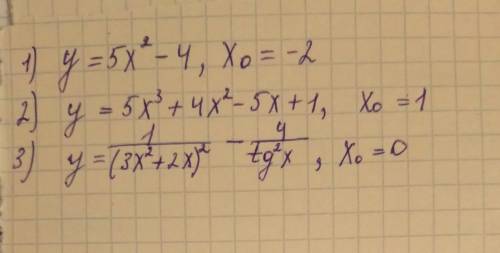 1) y = 5x² - 4, x₀ = -2
2) y = 5x³ + 4x² - 5x + 1, x₀ = 1
3) y = 1/(3x² + 2x)² - 4/tg²x, x₀ = 0